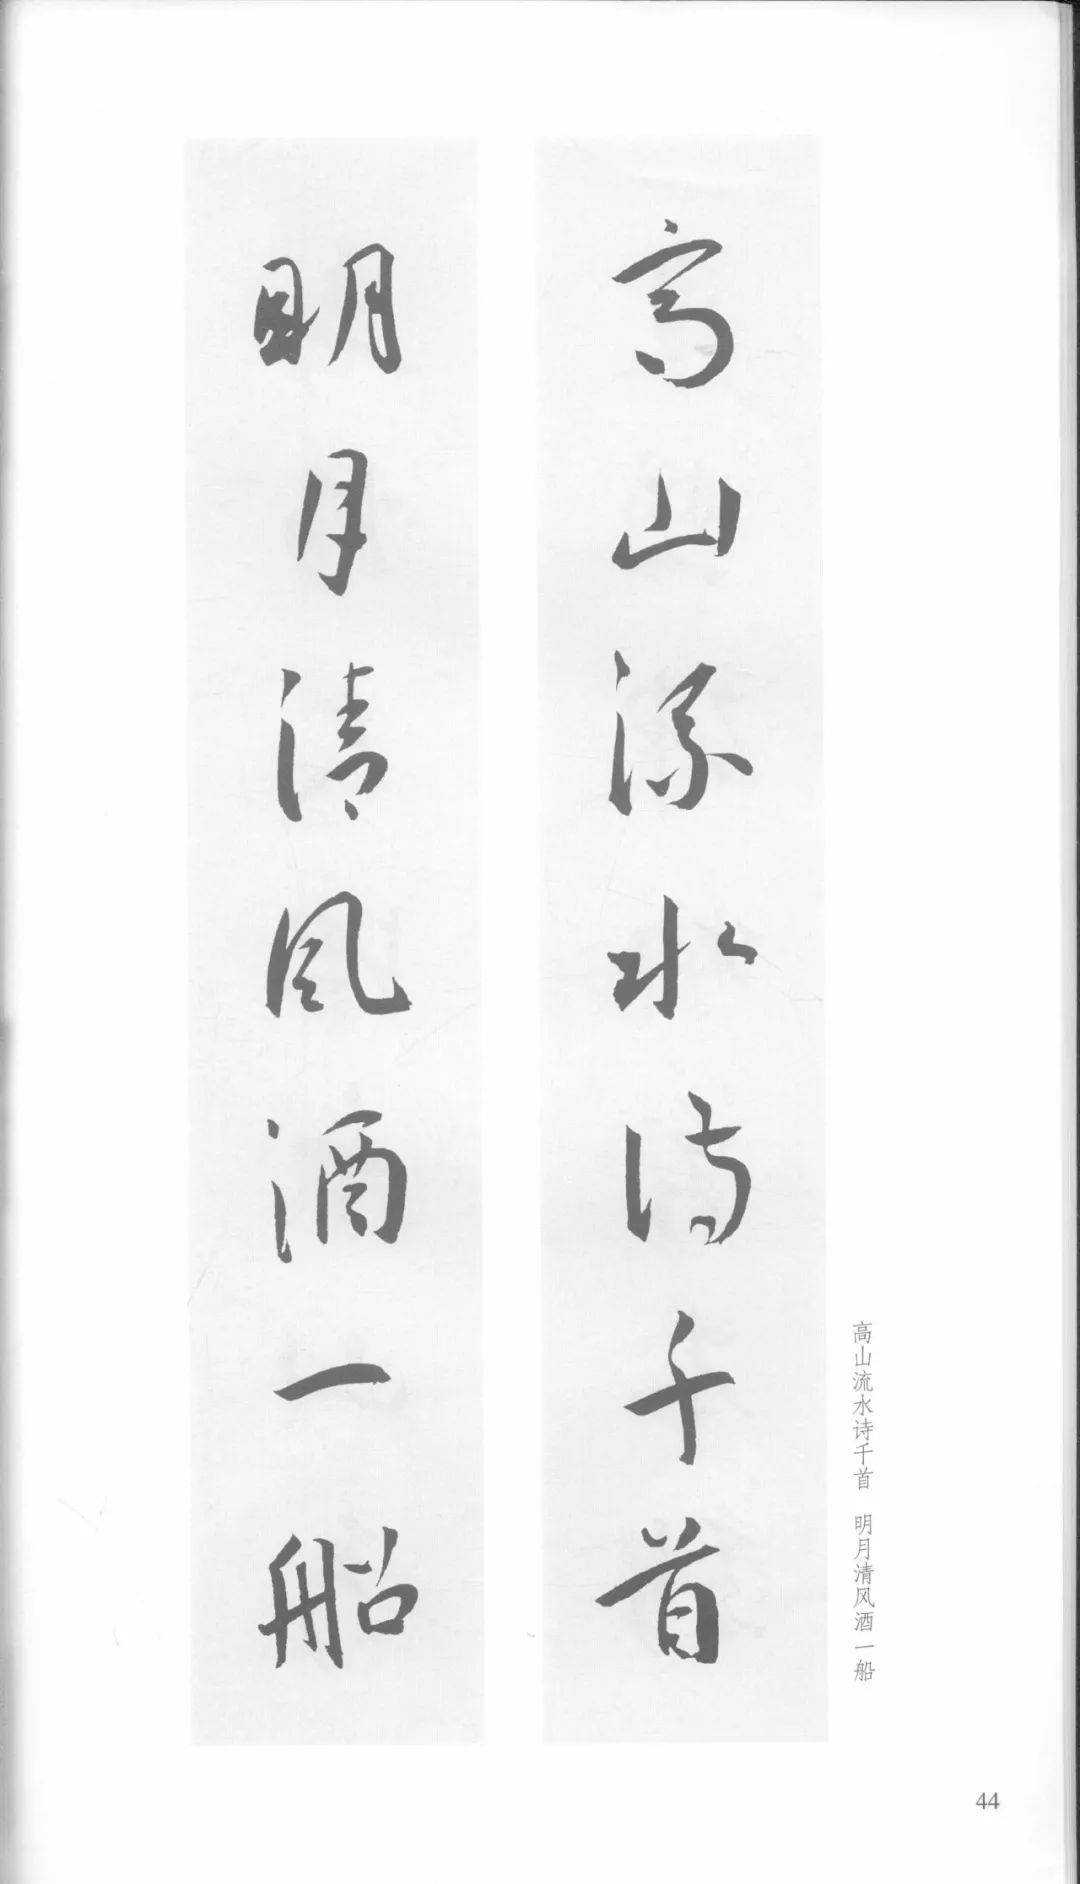 高山流水诗千首
明月清风酒一船
高山流水诗千首 明月清风酒一船
44